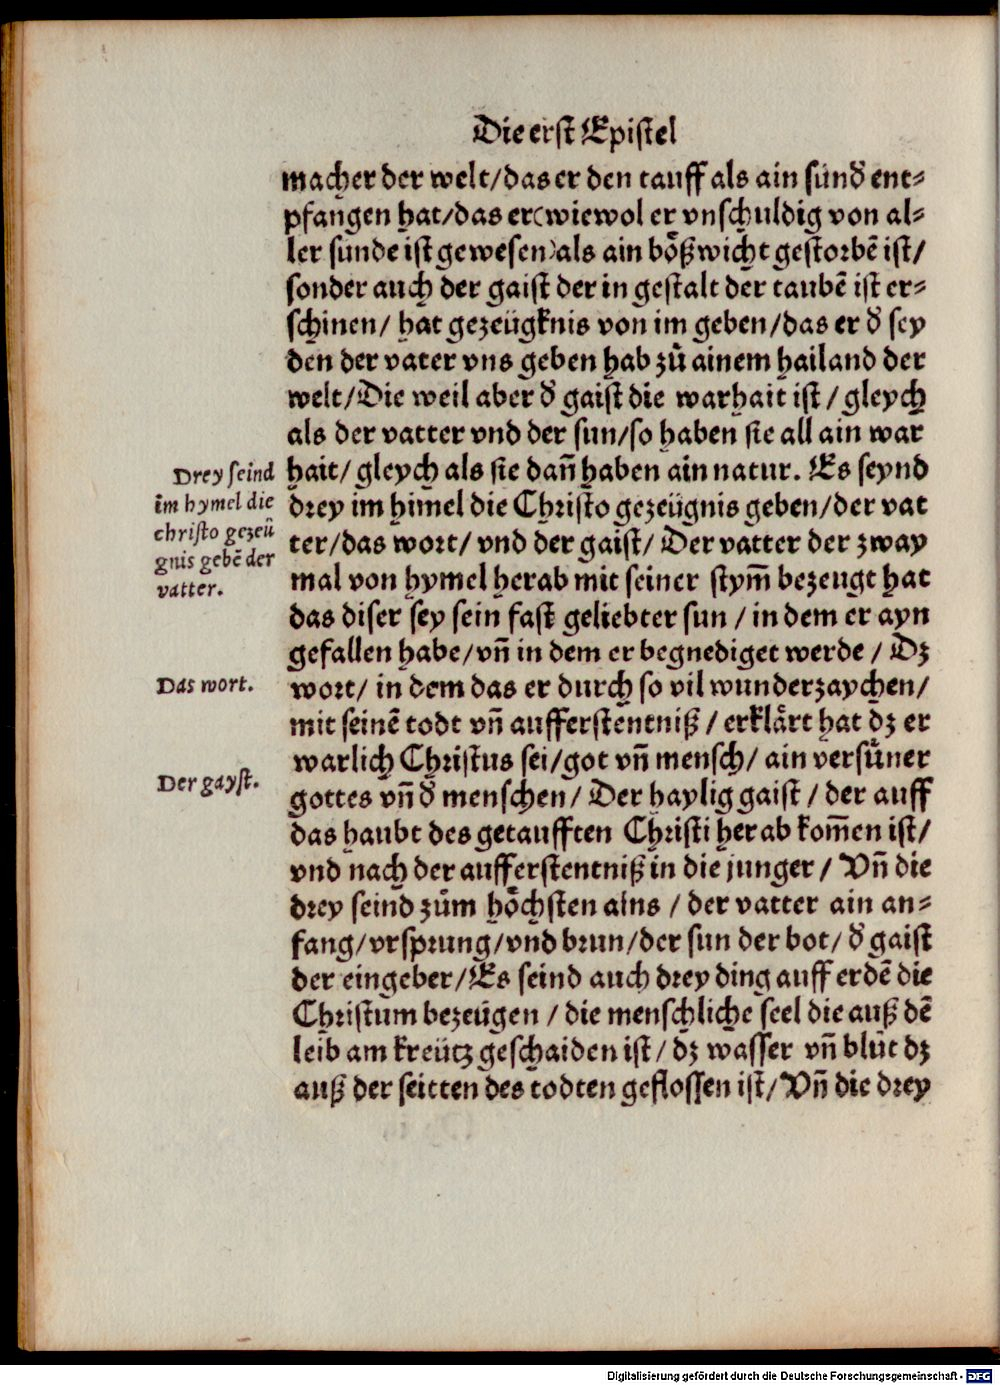 Die erst Epistel
macher der welt/das er den tauff als ain sünd̕ ent⸗
pfangen hat/das er(wiewol er vnschuldig von al⸗
ler sünde ist gewesen)als ain bößwicht gestorbē ist/
sonder auch der gaist der in gestalt der taubē ist er⸗
schinen/ hat gezeügknis von im geben/das er d̕ sey
den der vater vns geben hab zů ainem hailand der
welt/Die weil aber d̕ gaist die warhait ist/gleych
als der vatter vnd der sun/so haben sie all ain war
hait/gleych als sie dañ haben ain natur. Es seynd
drey im himel die Christo gezeügnis geben/der vat
ter/das wort/ vnd der gaist/ Der vatter der zway
mal von hymel herab mit seiner stym̄ bezeugt hat
das diser sey sein fast geliebter sun/in dem er ayn
gefallen habe/vñ in dem er begnediget werde/ Dz
wort/ in dem das er durch so vil wunderzaychen/
mit seinē todt vñ aufferstentniß/ erklärt hat dz er
warlich Christus sei/got vñ mensch/ ain versüner
gottes vñ d̕ menschen/ Der haylig gaist/ der auff
das haubt des getaufften Christi herab kom̄en ist/
vnd nach der aufferstentniß in die junger/ Vñ die
drey seind zům höchsten ains/ der vatter ain an⸗
fang/vrsprung/vnd brun/der sun der bot/ d̕ gaist
der eingeber/Es seind auch drey ding auff erdē die
Christum bezeügen/ die menschliche seel die auß dē
leib am kreütz geschaiden ist/ dz wasser vñ blůt dz
auß der seitten des todten geflossen ist/ Vñ die drey
Drey seind
im hymel die
christo gezeü
gnis gebē der
vatter.
Das wort.
Der gayst.
Digitalisierung gefördert durch die Deutsche Forschungsgemeinschaft - DFG